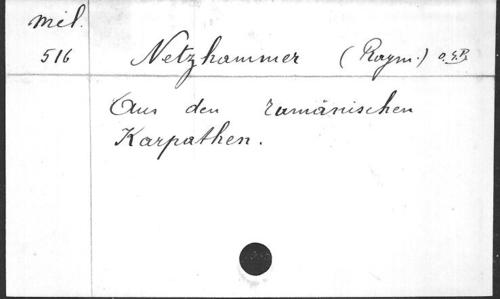 Mél.
516
Netzhammer (Raym.) O.S.B.
Aus den rumänischen
Karpathen.